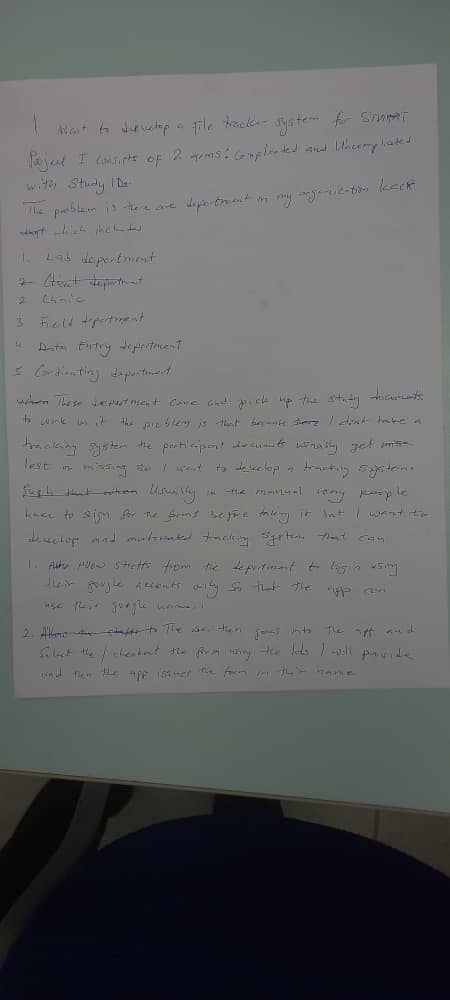 I want to develop a file tracker system for SMART
Project I consists of 2 arms: Complicated and Uncomplicated
with Study IDs.
The problem is there are department in my organization
which included
1. Lab department
2 Client department
2 Clinic
3 Field department
4 Data Entry department
5 Cordinating department
When These department come and pick up the study documents
to work on it the problem is that because I dont have a
tracking system the participant documents usually get
lost or missing so I want to develop a tracking system.
Such that when Usually in the manual way people
have to sign for the forms before taking it but I want to
develop and automated tracking system that can
1. Allow staffs from the department to login using
their google accounts only so that the app can
use their google names.
2. Allow the staffs to The user then goes into the app and
Select the / checkout the form using the Ids I will provide
and then the app issues the form in their name